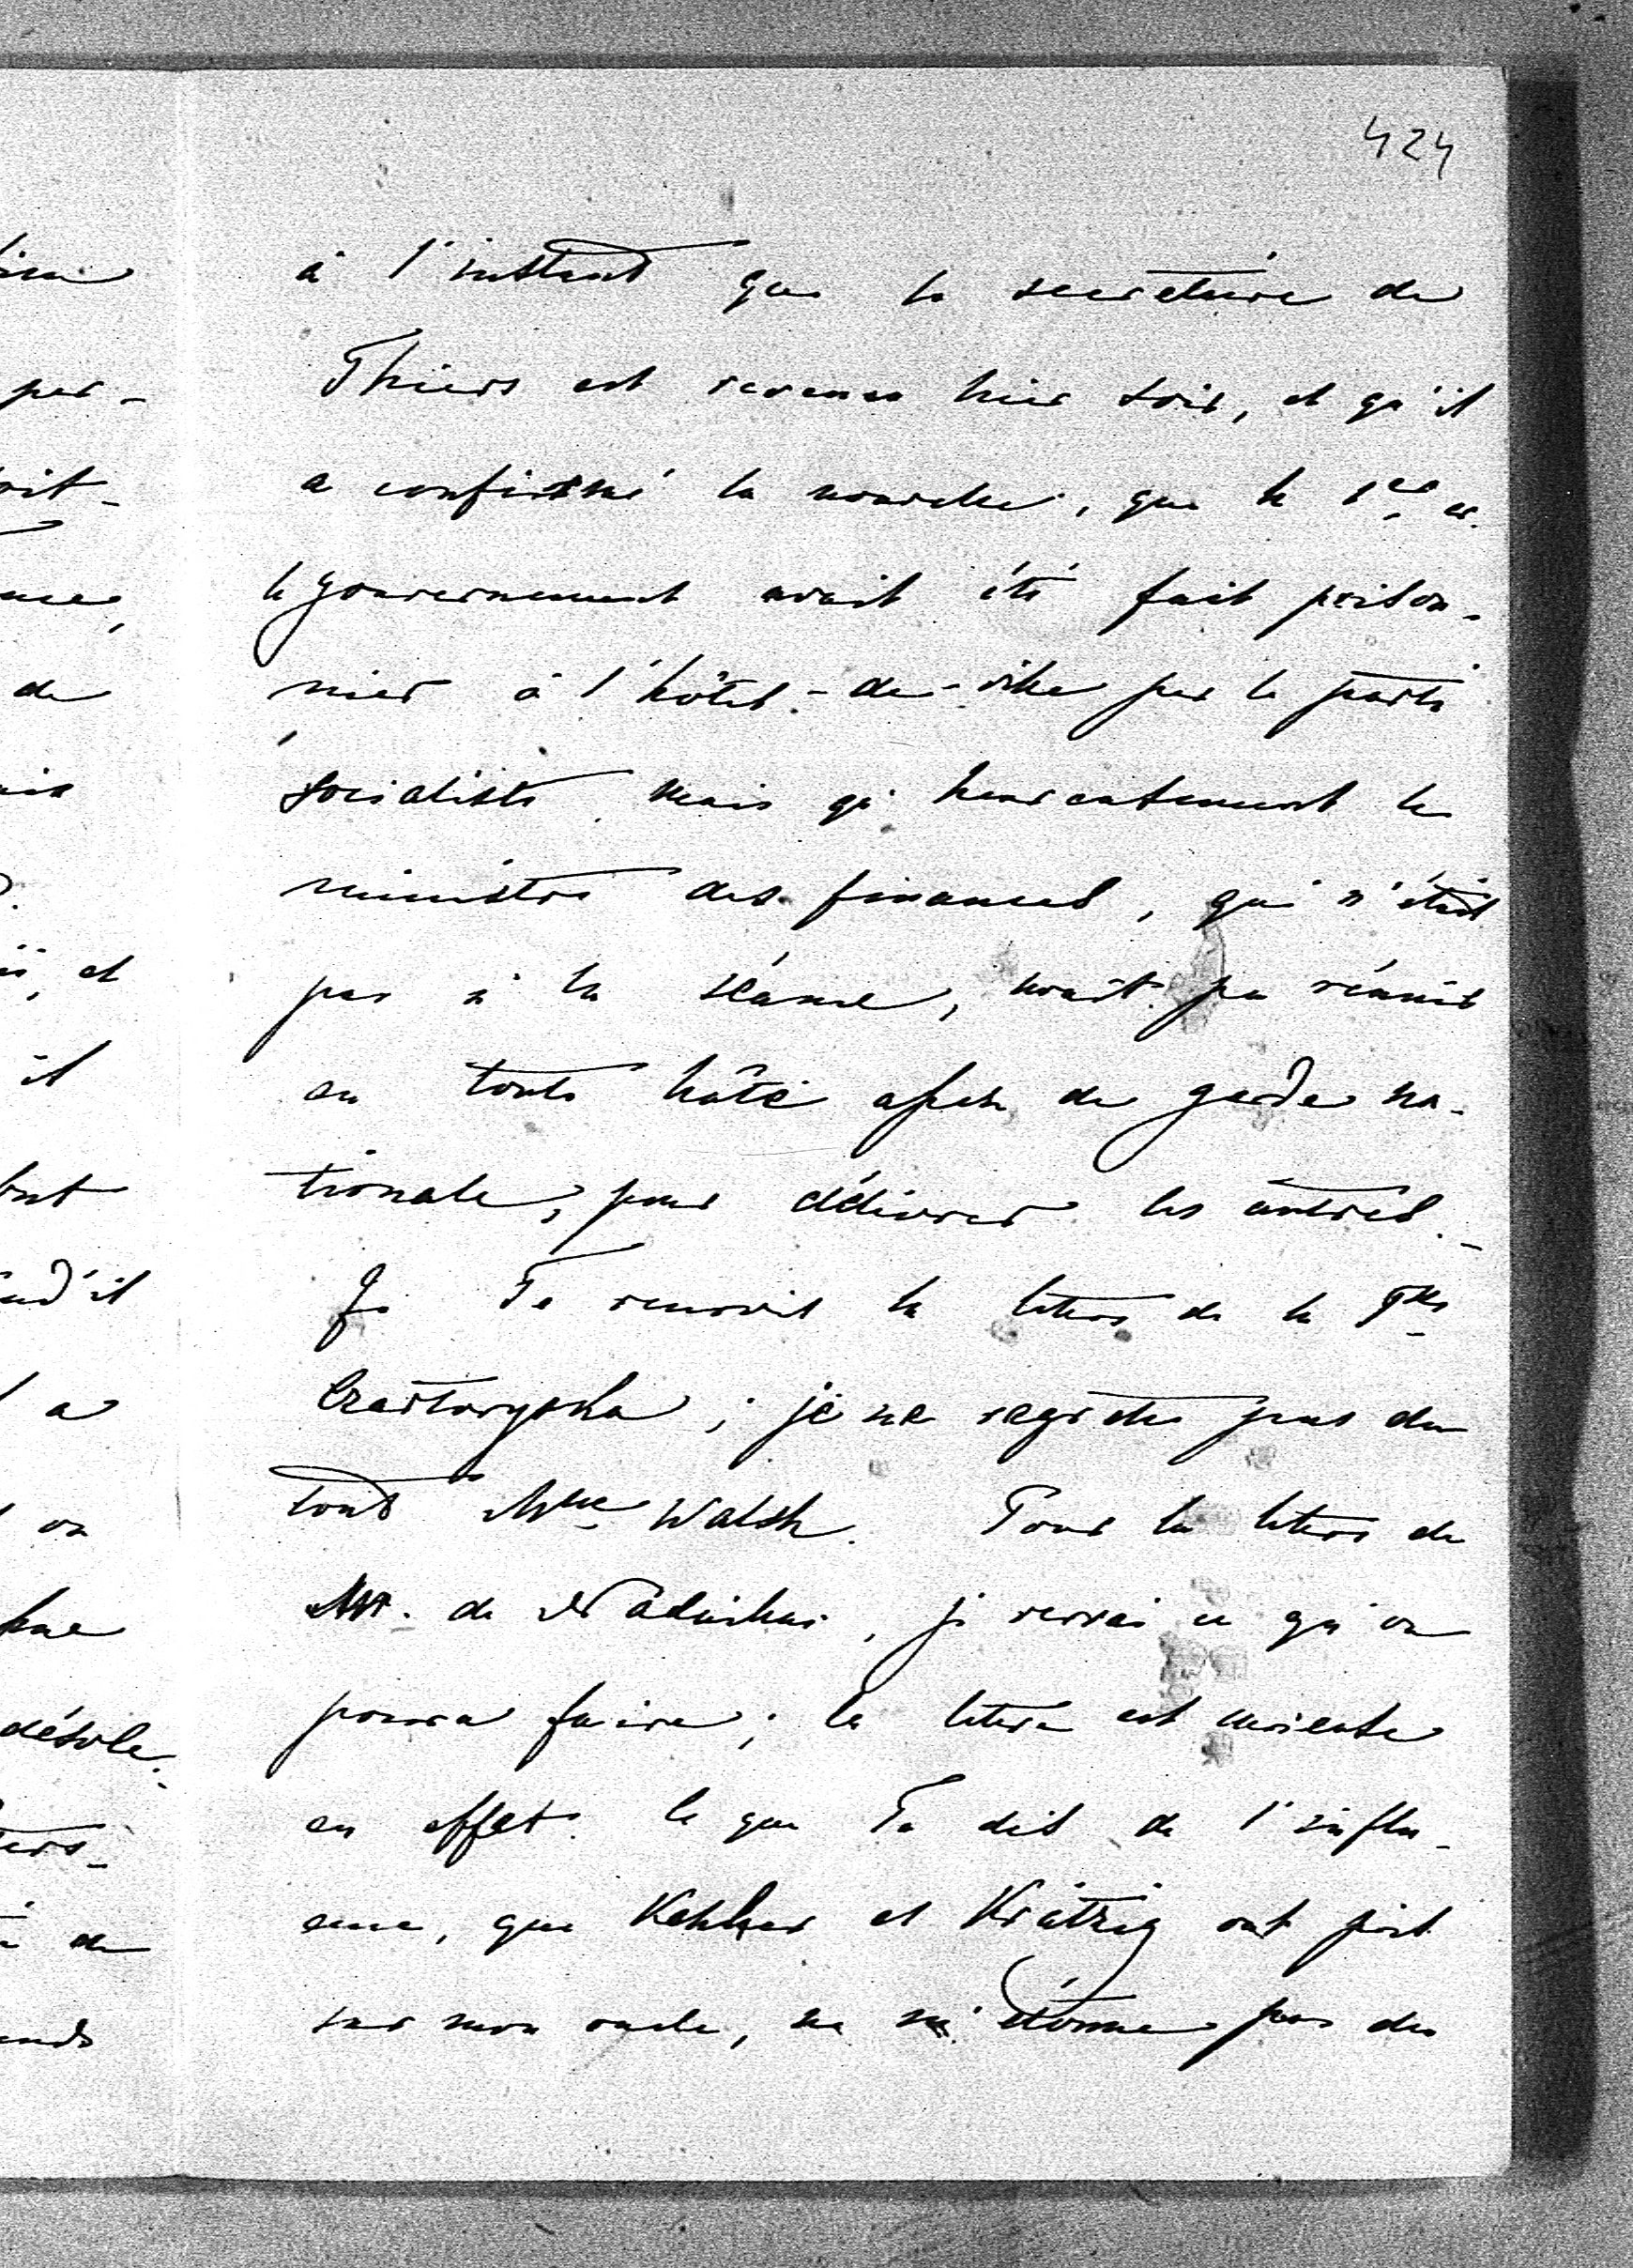 424
à l'instant que le secrétaire de
Thiers est revenu hier soir, et qu'il
a confirmé la nouvelle, que le 1er cr.
le gouvernement avait été fait prison-
nier à l'hôtel-de-ville par le parti
socialiste, mais qu'heureusement le
ministre des finances, qui n'était
pas à la séance, avait pu réunir
en toute hâte assez de garde na-
tionale, pour délivrer les autres. –
Je Te renvois la lettre de la Psse
Czartoryska; je ne regrette pas du
tout Mme Walsh. Pour la lettre de
M. de , je verrai ce qu'on
pourra faire; la lettre est curieuse
en effet. Ce que Tu dis de l'influ-
ence, que Kehler et Krätzig ont pris
sur mon oncle, ne m'étonne pas du
per-
de
et
il
a
on
désole.
de